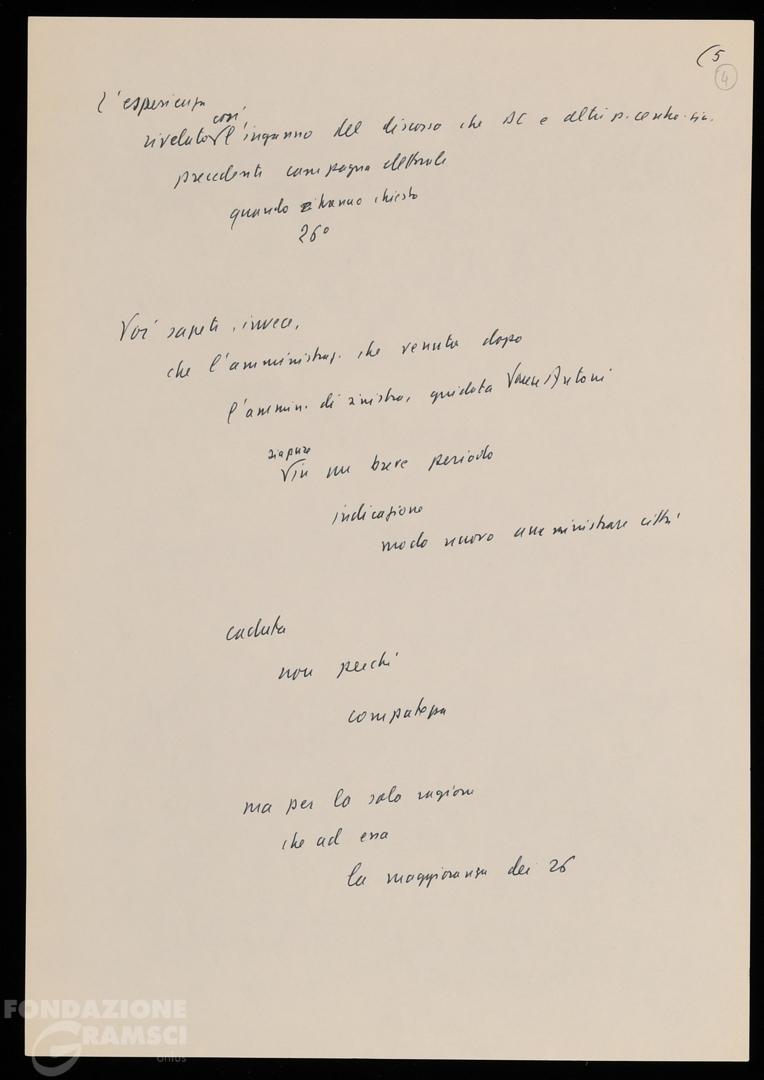 (5
4
L'esperienza
così
rivelato l'inganno del discorso che DC e altri p. centro-sin.
precedente campagna elettorale
quando hanno chiesto
26°
Voi sapete, invece,
che l'amministraz. che venuta dopo
l'ammin. di sinistra, guidata Antoni
sia pure
in un breve periodo
indicazione
modo nuovo amministrare città
caduta
non perché
compatezza
ma per la sola ragione
che ad essa
la maggioranza dei 26
FONDAZIONE
GRAMSCI
onlus